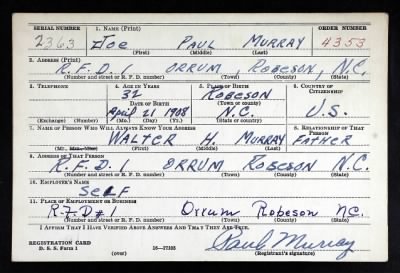 SERIAL NUMBER 1. NAME (Print) ORDER NUMBER
2363 Joe Paul Murray 4353
(First) (Middle) (Last)
2. ADDRESS (Print)
R.F.D. 1 Orrum, Robeson, N.C.
(Number and street or R. F. D. number) (Town) (County) (State)
3. TELEPHONE 4. AGE IN YEARS 5. PLACE OF BIRTH 6. COUNTRY OF CITIZENSHIP
32 Robeson
DATE OF BIRTH (Town or county)
April 21 1908 N.C. U.S.
(Exchange) (Number) (Mo.) (Day) (Yr.) (State or country)
7. NAME OF PERSON WHO WILL ALWAYS KNOW YOUR ADDRESS 8. RELATIONSHIP OF THAT PERSON
Walter H. Murray Father
(Mr., Mrs., Miss) (First) (Middle) (Last)
9. ADDRESS OF THAT PERSON
R.F.D. 1 Orrum Robeson N.C.
(Number and street or R. F. D. number) (Town) (County) (State)
10. EMPLOYER'S NAME
Self
11. PLACE OF EMPLOYMENT OR BUSINESS
R-F D #1 Orrum Robeson NC.
(Number and street or R. F. D. number) (Town) (County) (State)
I AFFIRM THAT I HAVE VERIFIED ABOVE ANSWERS AND THAT THEY ARE TRUE.
REGISTRATION CARD
D. S. S. Form 1 (over) 16-17105 Paul Murray